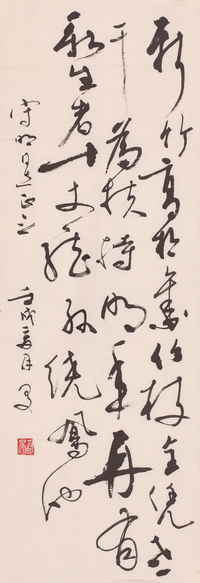 新竹高於舊竹枝全凭老
干為扶持明年再有
新生者十丈龍孫繞鳳池
守明正之 壬戌夏月